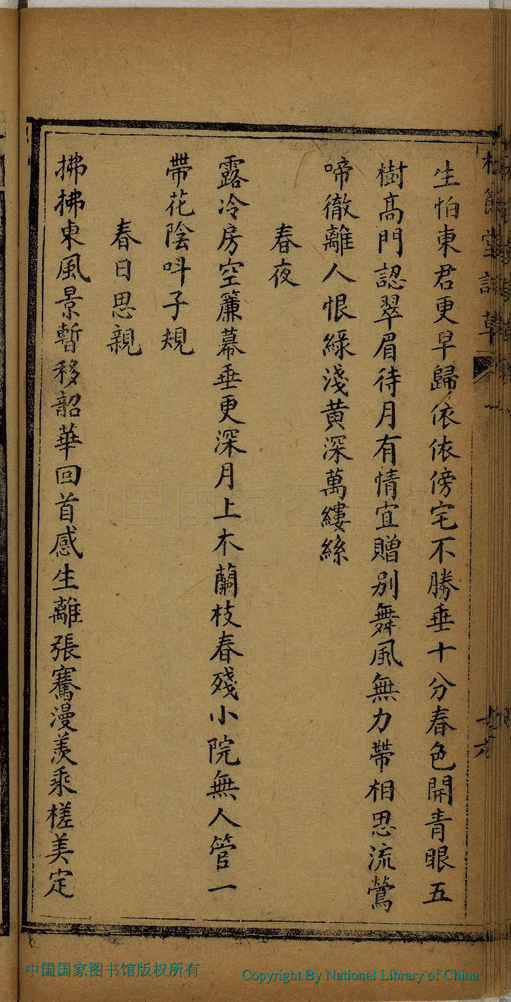 生怕東君更早歸依依傍宅不勝垂十分春色開青眼五
樹高門認翠眉待月有情宜贈別舞風無力帶相思流鶯
啼徹離人恨綠淺黃深萬縷絲
春夜
露冷房空簾幕垂更深月上木蘭枝春殘小院無人管一
帶花陰呌子規
春日思親
拂拂東風景暫移韶華回首感生離張騫漫羨乘槎美定
中国国家图书馆版权所有
Copyright By National Library of China